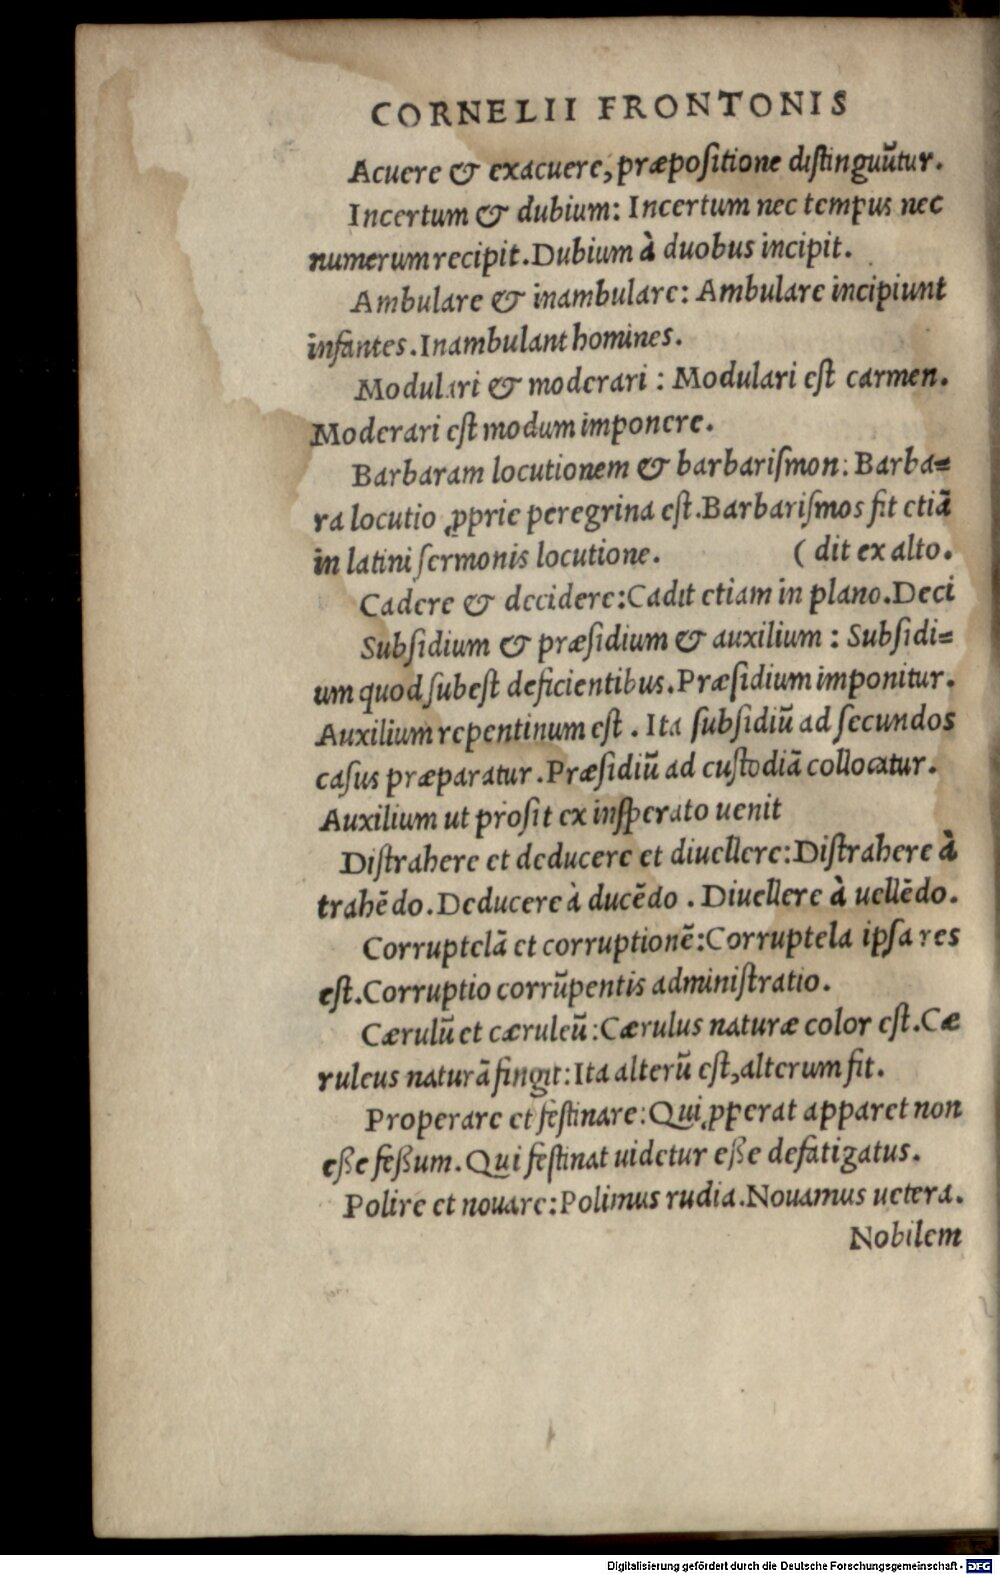 CORNELII FRONTONIS
Acuere & exacuere, præpositione distinguūtur.
Incertum & dubium: Incertum nec tempus nec
numerum recipit. Dubium à duobus incipit.
Ambulare & inambulare: Ambulare incipiunt
infantes. Inambulant homines.
Modulari & moderari : Modulari est carmen.
Moderari est modum imponere.
Barbaram locutionem & barbarismon: Barba=
ra locutio ꝓprie peregrina est. Barbarismos fit etiā
in latini sermonis locutione. ( dit ex alto.
Cadere & decidere: Cadit etiam in plano. Deci
Subsidium & præsidium & auxilium : Subsidi=
um quod subest deficientibus. Præsidium imponitur.
Auxilium repentinum est . Ita subsidiū ad secundos
casus præparatur . Præsidiū ad custodiā collocatur.
Auxilium ut prosit ex insperato uenit
Distrahere et deducere et diuellere: Distrahere à
trahēdo. Deducere à ducēdo . Diuellere à uellēdo.
Corruptelā et corruptionē: Corruptela ipsa res
est. Corruptio corrūpentis administratio.
Cærulū et cæruleū: Cærulus naturæ color est. Cæ
ruleus naturā fingit: Ita alterū est, alterum fit.
Properare et festinare: Qui ꝓperat apparet non
eße feßum. Qui festinat uidetur eße defatigatus.
Polire et nouare: Polimus rudia. Nouamus uetera.
Nobilem
Digitalisierung gefördert durch die Deutsche Forschungsgemeinschaft - DFG